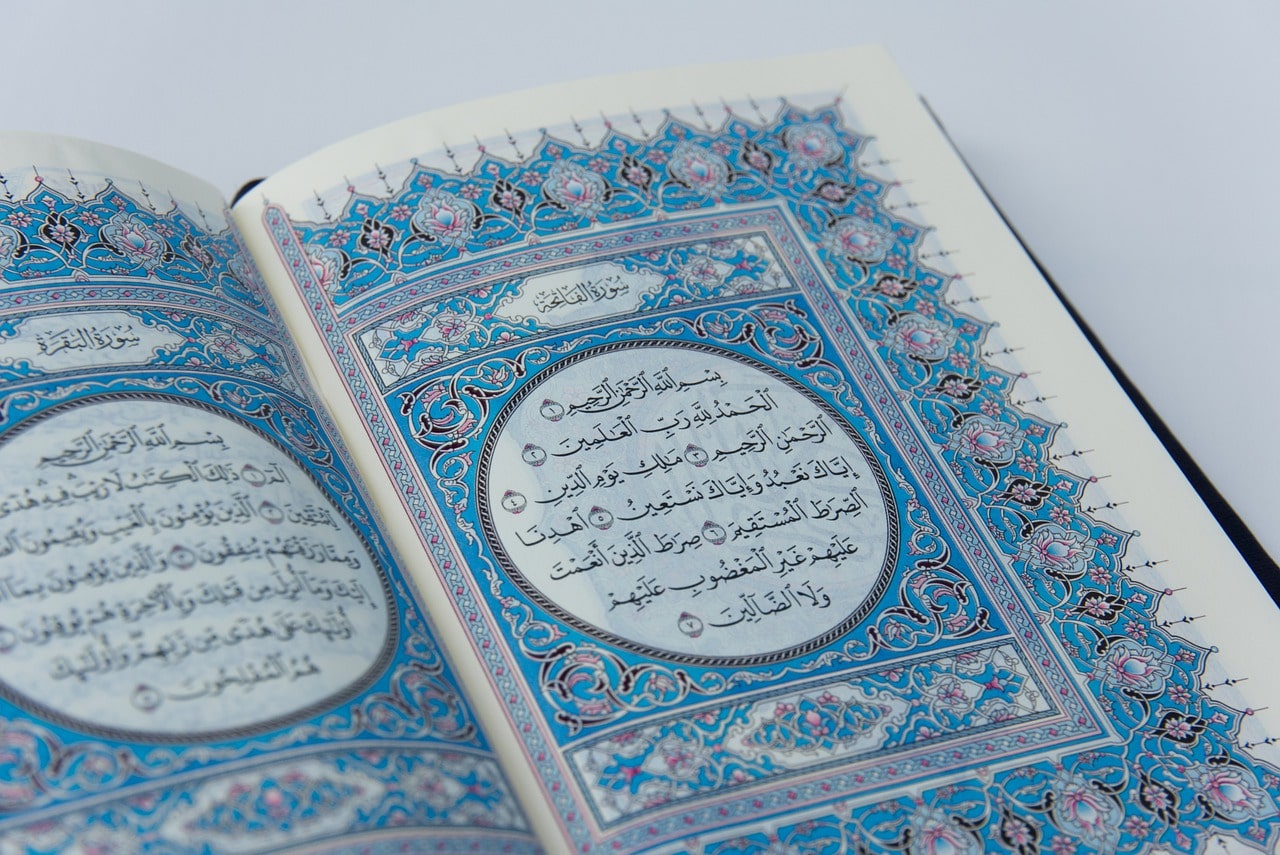 سُورَةُ الفَاتِحَة
بِسْمِ ٱللَّهِ ٱلرَّحْمَٰنِ ٱلرَّحِيمِ ١
ٱلْحَمْدُ لِلَّهِ رَبِّ ٱلْعَٰلَمِينَ ٢
ٱلرَّحْمَٰنِ ٱلرَّحِيمِ ٣ مَٰلِكِ يَوْمِ ٱلدِّينِ ٤
إِيَّاكَ نَعْبُدُ وَإِيَّاكَ نَسْتَعِينُ ٥ ٱهْدِنَا
ٱلصِّرَٰطَ ٱلْمُسْتَقِيمَ ٦ صِرَٰطَ ٱلَّذِينَ أَنْعَمْتَ
عَلَيْهِمْ غَيْرِ ٱلْمَغْضُوبِ عَلَيْهِمْ
وَلَا ٱلضَّآلِّينَ ٧
سُورَةُ البَقَرَة
بِسْمِ ٱللَّهِ ٱلرَّحْمَٰنِ ٱلرَّحِيمِ
الٓمٓ ١ ذَٰلِكَ ٱلْكِتَٰبُ لَا رَيْبَ فِيهِ هُدًى
لِّلْمُتَّقِينَ ٢ ٱلَّذِينَ يُؤْمِنُونَ بِٱلْغَيْبِ وَيُقِيمُونَ
وَمِمَّا رَزَقْنَٰهُمْ يُنفِقُونَ ٣ وَٱلَّذِينَ يُؤْمِنُونَ بِمَآ
إِلَيْكَ وَمَآ أُنزِلَ مِن قَبْلِكَ وَبِٱلْءَاخِرَةِ هُمْ يُوقِنُونَ ٤
أُو۟لَٰٓئِكَ عَلَىٰ هُدًى مِّن رَّبِّهِمْ وَأُو۟لَٰٓئِكَ
هُمُ ٱلْمُفْلِحُونَ ٥